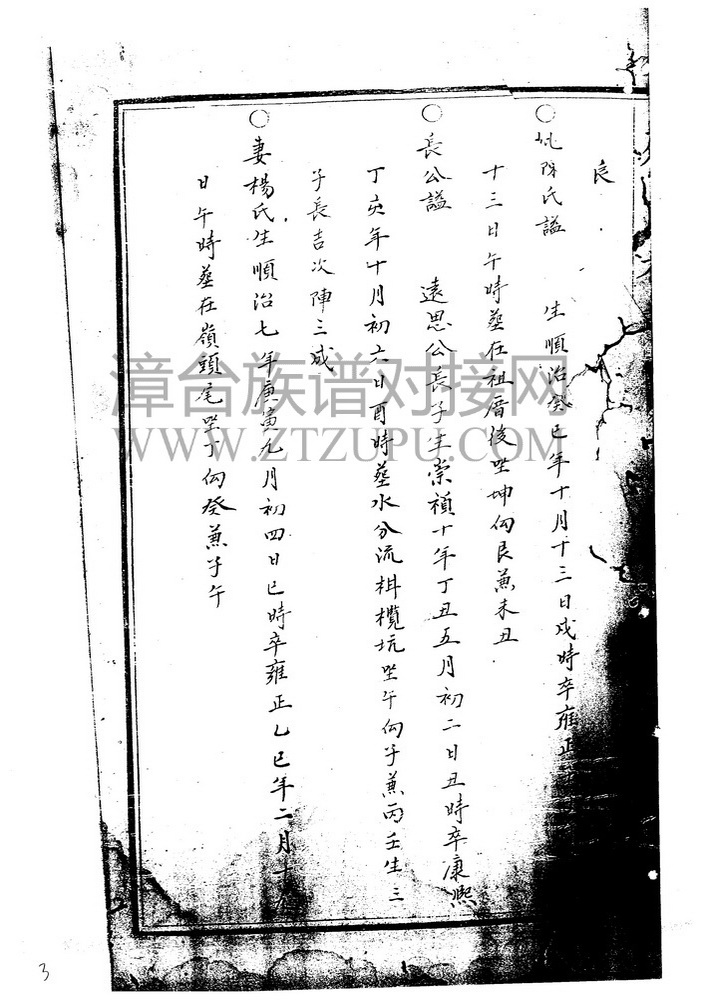 良
○妣陈氏謚 生順治癸巳年十月十三日戍時卒雍正
十三日午時塟在祖厝後坐坤向艮兼未丑
○長公謚 遠思公長子生崇禎十年丁丑五月初二日丑時卒康熙
丁亥年十月初六日酉時塟水分流柑欖坑坐午向子兼丙壬生三
子長吉次陣三成
○妻楊氏生順治七年庚寅九月初四日巳時卒雍正乙巳年二月十
日午時塟在嶺頭尾坐丁向癸兼子午
漳台族谱对接网
WWW.ZTZUPU.COM
3